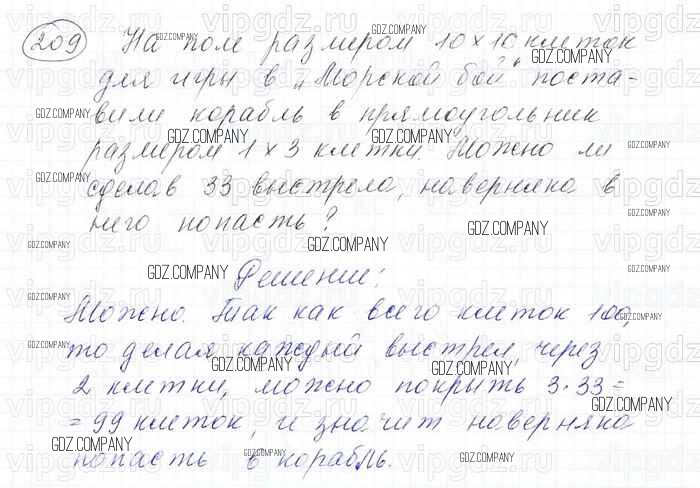 209 На поле размером 10×10 клеток
для игры в „Морской бой" поста-
вили корабль в прямоугольник
размером 1×3 клетки. Можно ли
сделав 33 выстрела, наверняка в
него попасть?
Решение:
Можно. Так как всего клеток 100,
то делая каждый выстрел, через
2 клетки, можно покрыть 3·33=
=99 клеток, и значит наверняка
попасть в корабль.